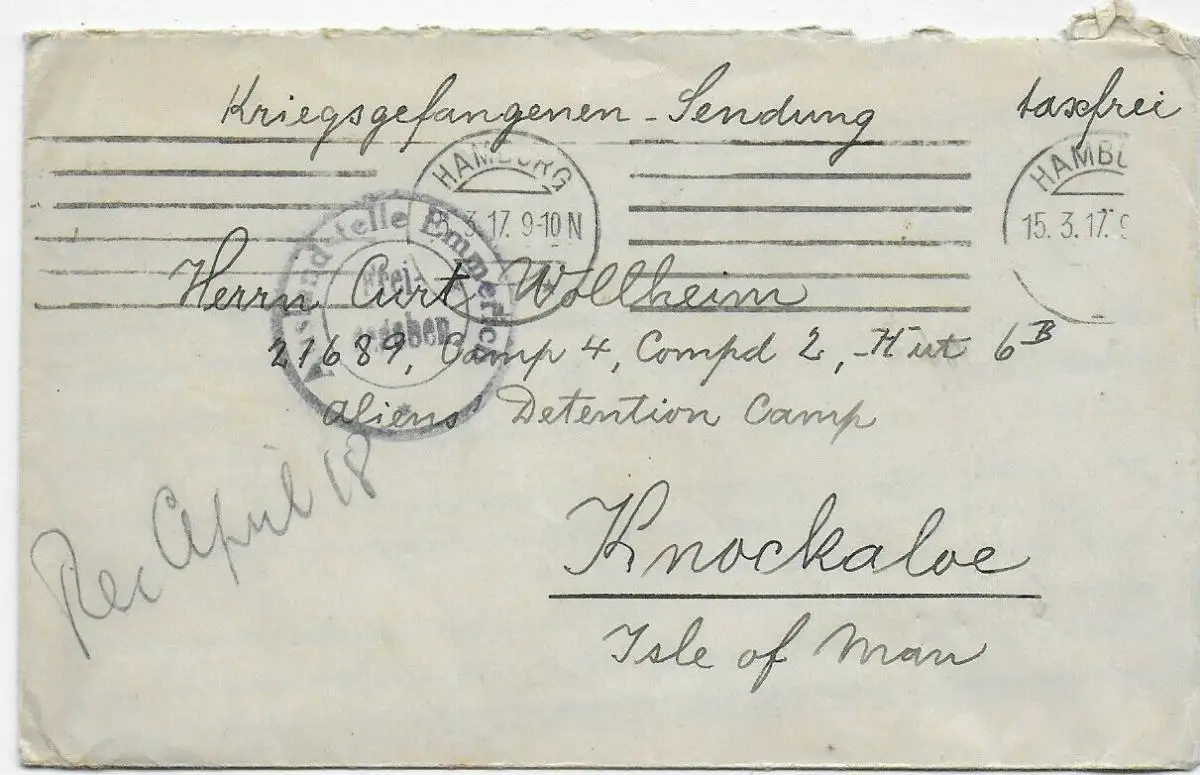 Kriegsgefangenen-Sendung taxfrei
HAMBURG HAMBU
15.3.17. 9-10 N 15.3.17. 9
Emmerich
Frei-
gegeben
Herrn Curt Wollheim
21689, Camp 4, Compd 2, Hut 6B
Aliens' Detention Camp
Rec April 18
Knockaloe
Isle of Man